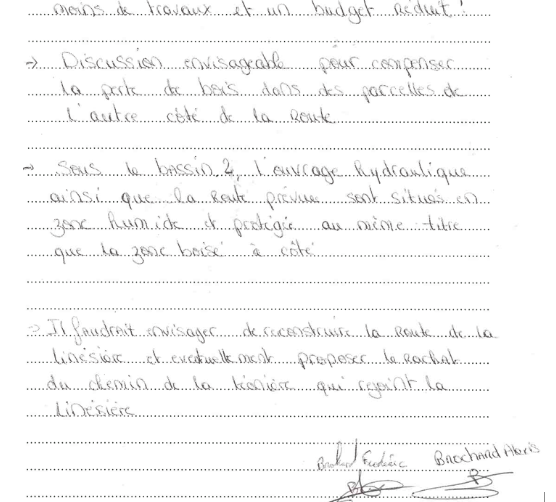 moins de travaux et un budget réduit !
→ Discussion envisageable pour compenser
la perte de bois dans des parcelles de
l'autre côté de la Route
→ Sous le bassin 2, l'ouvrage hydraulique
ainsi que la Route prévue sont situés en
zone humide et protégée au même titre
que la zone boisé à côté
→ Il faudrait envisager de reconstruire la Route de la
linésière et eventuellement proposer le rachat
du chemin de la qui rejoint la
linésière
Brochard Frédéric Brochard Alexis